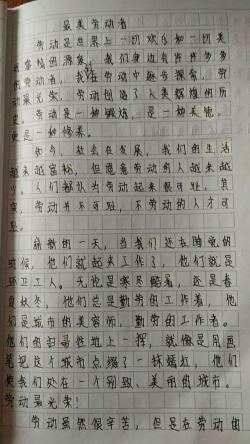 最美劳动者
劳动是世界上一切欢乐和一切美
好事情的源泉。我们身边有许许多多
的劳动者，我在劳动中趣步探索，劳
动最光荣，劳动创造了人类辉煌的历
史。劳动是一种锻炼，是一种美德，
更是一种修养。
如今，社会在发展，我们的生活
越来越富裕，但愿意劳动的人越来越
少。人们都认为劳动起来很可耻，其
实，劳动并不可耻，不劳动的人才可
耻。
崭新的一天，当我们还在睡觉的
时候，他们就起来工作了，他们就是
环卫工人。无论是寒冬酷暑，还是春
夏秋冬，他们总是勤劳的工作着，他
们是城市的美容师，勤劳的工作者。
他们的扫帚往地上一挥，就像是用画
笔把这个城市点缀了一抹嫣红，他们
使我们处在一个别致、美丽的城市。
劳动最光荣！
劳动虽然很辛苦，但是在劳动的